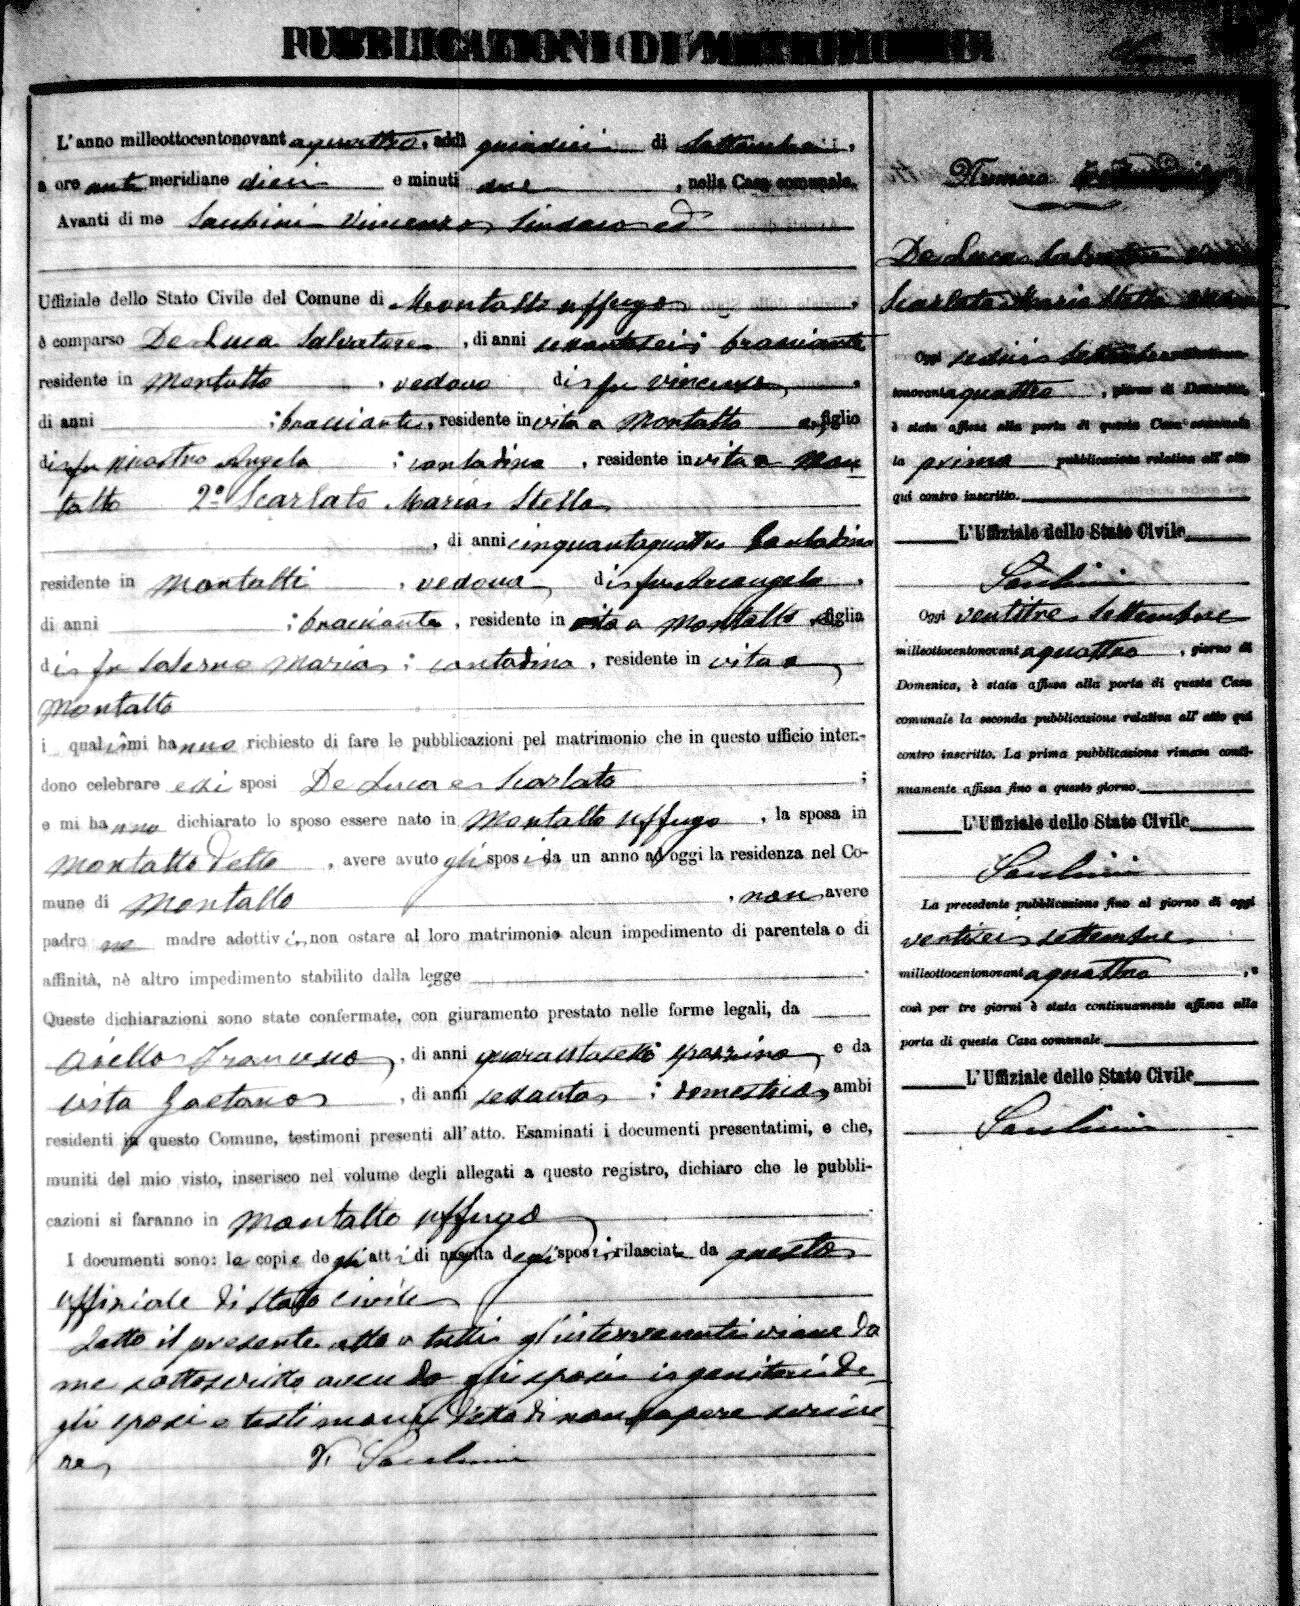 PUBBLICAZIONI DI MATRIMONIO
L'anno milleottocentonovantaquattro, addì quindici di Settembre,
a ore anti meridiane dieci e minuti due, nella Casa comunale.
Avanti di me Saulini Vincenzo Sindaco ed
Uffiziale dello Stato Civile del Comune di Montalto Uffugo,
è comparso De Luca Salvatore, di anni sessantasei; bracciante
residente in Montalto, vedovo di fu Vincenzo,
di anni ; bracciante, residente in vita a Montalto e figlio
di fu Angela ; contadina, residente in vita a Mon
talto 2º Scarlato Maria Stella
, di anni cinquantaquattro Contadina
residente in Montalti, vedova, di fu Arcangelo,
di anni ; bracciante, residente in vita a Montalto e figlia
di fu Salerno Maria ; contadina, residente in vita a
Montalto
i quali mi hanno richiesto di fare le pubblicazioni pel matrimonio che in questo ufficio inten-
dono celebrare essi sposi De Luca e Scarlato ;
e mi hanno dichiarato lo sposo essere nato in Montalto Uffugo, la sposa in
Montalto detto, avere avuto gli sposi da un anno ad oggi la residenza nel Co-
mune di Montalto, non avere
padre ne madre adottivi, non ostare al loro matrimonio alcun impedimento di parentela o di
affinità, nè altro impedimento stabilito dalla legge .
Queste dichiarazioni sono state confermate, con giuramento prestato nelle forme legali, da
Aiello Francesco, di anni quarantasei; spazzino, e da
Vista Gaetano, di anni sessanta ; domestico, ambi
residenti in questo Comune, testimoni presenti all'atto. Esaminati i documenti presentatimi, e che,
muniti del mio visto, inserisco nel volume degli allegati a questo registro, dichiaro che le pubbli-
cazioni si faranno in Montalto Uffugo .
I documenti sono: le copie degli atti di nascita degli sposi, rilasciate da questo
uffiziale di stato civile
Letto il presente atto a tutti gl'intervenuti viene da
me sottoscritto avendo gli sposi i genitori de-
gli sposi e testimoni detto di non sapere scrive
re
V. Saulini
Numero
De Luca Salvatore
Scarlato Maria Stella
Oggi sedici Settembre milleottocento-
novantaquattro, giorno di Domenica,
è stata affissa alla porta di questa Casa comunale
la prima pubblicazione relativa all'atto
qui contro inscritto.
L'Uffiziale dello Stato Civile
Saulini
Oggi ventitre Settembre
milleottocentonovantaquattro, giorno di
Domenica, è stata affissa alla porta di questa Casa
comunale la seconda pubblicazione relativa all'atto qui
contro inscritto. La prima pubblicazione rimase conti-
nuamente affissa fino a questo giorno.
L'Uffiziale dello Stato Civile
Saulini
La precedente pubblicazione fino al giorno di oggi
ventisei settembre
milleottocentonovantaquattro, e
così per tre giorni è stata continuamente affissa alla
porta di questa Casa comunale.
L'Uffiziale dello Stato Civile
Saulini